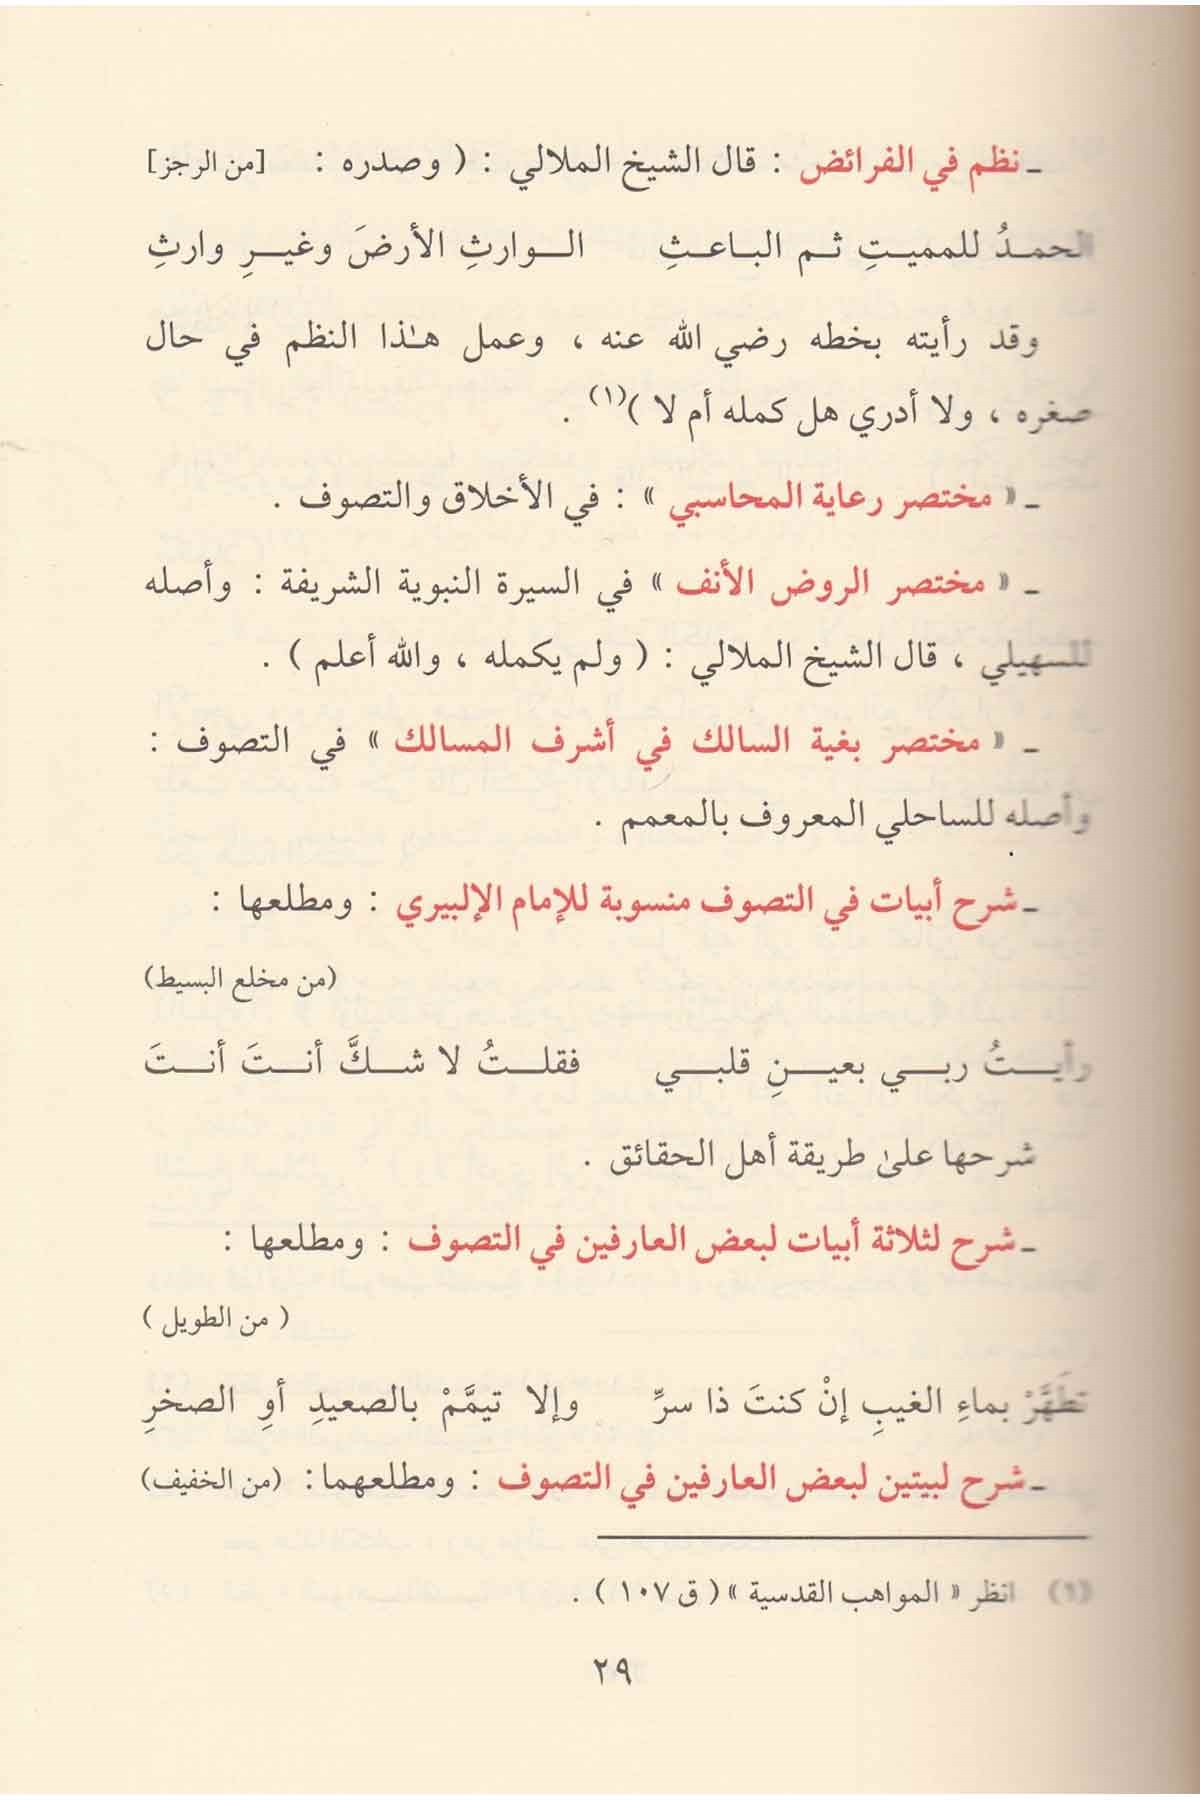 ـ نظم في الفرائض : قال الشيخ الملالي : ( وصدره : [من الرجز]
الحمدُ للمميتِ ثم الباعثِ الوارثِ الأرضَ وغيرِ وارثِ
وقد رأيته بخطه رضي الله عنه ، وعمل هـٰذا النظم في حال
صغره ، ولا أدري هل كمله أم لا )(١) .
ـ « مختصر رعاية المحاسبي » : في الأخلاق والتصوف .
ـ « مختصر الروض الأنف » في السيرة النبوية الشريفة : وأصله
للسهيلي ، قال الشيخ الملالي : ( ولم يكمله ، والله أعلم ) .
ـ « مختصر بغية السالك في أشرف المسالك » في التصوف :
وأصله للساحلي المعروف بالمعمم .
ـ شرح أبيات في التصوف منسوبة للإمام الإلبيري : ومطلعها :
(من مخلع البسيط)
رأيتُ ربي بعينِ قلبي فقلتُ لا شكَّ أنتَ أنتَ
شرحها علىٰ طريقة أهل الحقائق .
ـ شرح لثلاثة أبيات لبعض العارفين في التصوف : ومطلعها :
( من الطويل )
تطَهَّرْ بماءِ الغيبِ إنْ كنتَ ذا سرِّ وإلا تيمَّمْ بالصعيدِ أوِ الصخرِ
ـ شرح لبيتين لبعض العارفين في التصوف : ومطلعهما : (من الخفيف)
(١) انظر « المواهب القدسية » ( ق ١٠٧ ) .
٢٩